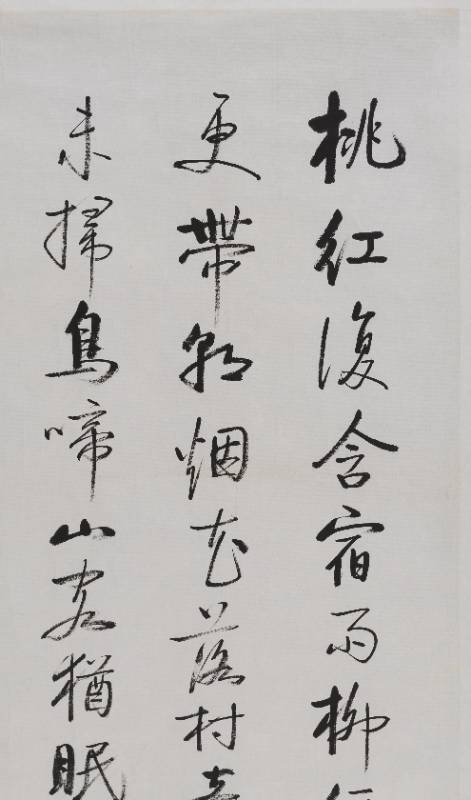 桃紅復含宿雨柳
更帶朝烟花落村
未掃鳥啼山客猶眠